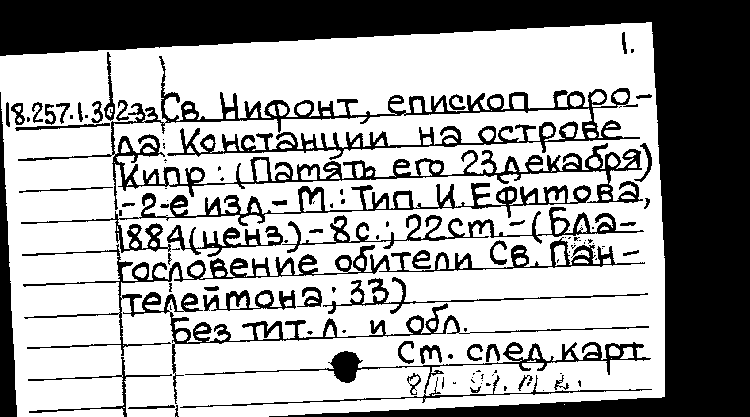 1.
18.257.1.302-33 Св. Нифонт, епископ горо-
да Констанции на острове
Кипр: (Память его 23 декабря)
.-2-е изд.-М.: Тип. И. Ефимова,
1884(ценз.).-8с.; 22см.-(Бла-
гословение обители Св. Пан-
телеймона; 33)
Без тит. л. и обл.
См. след. карт